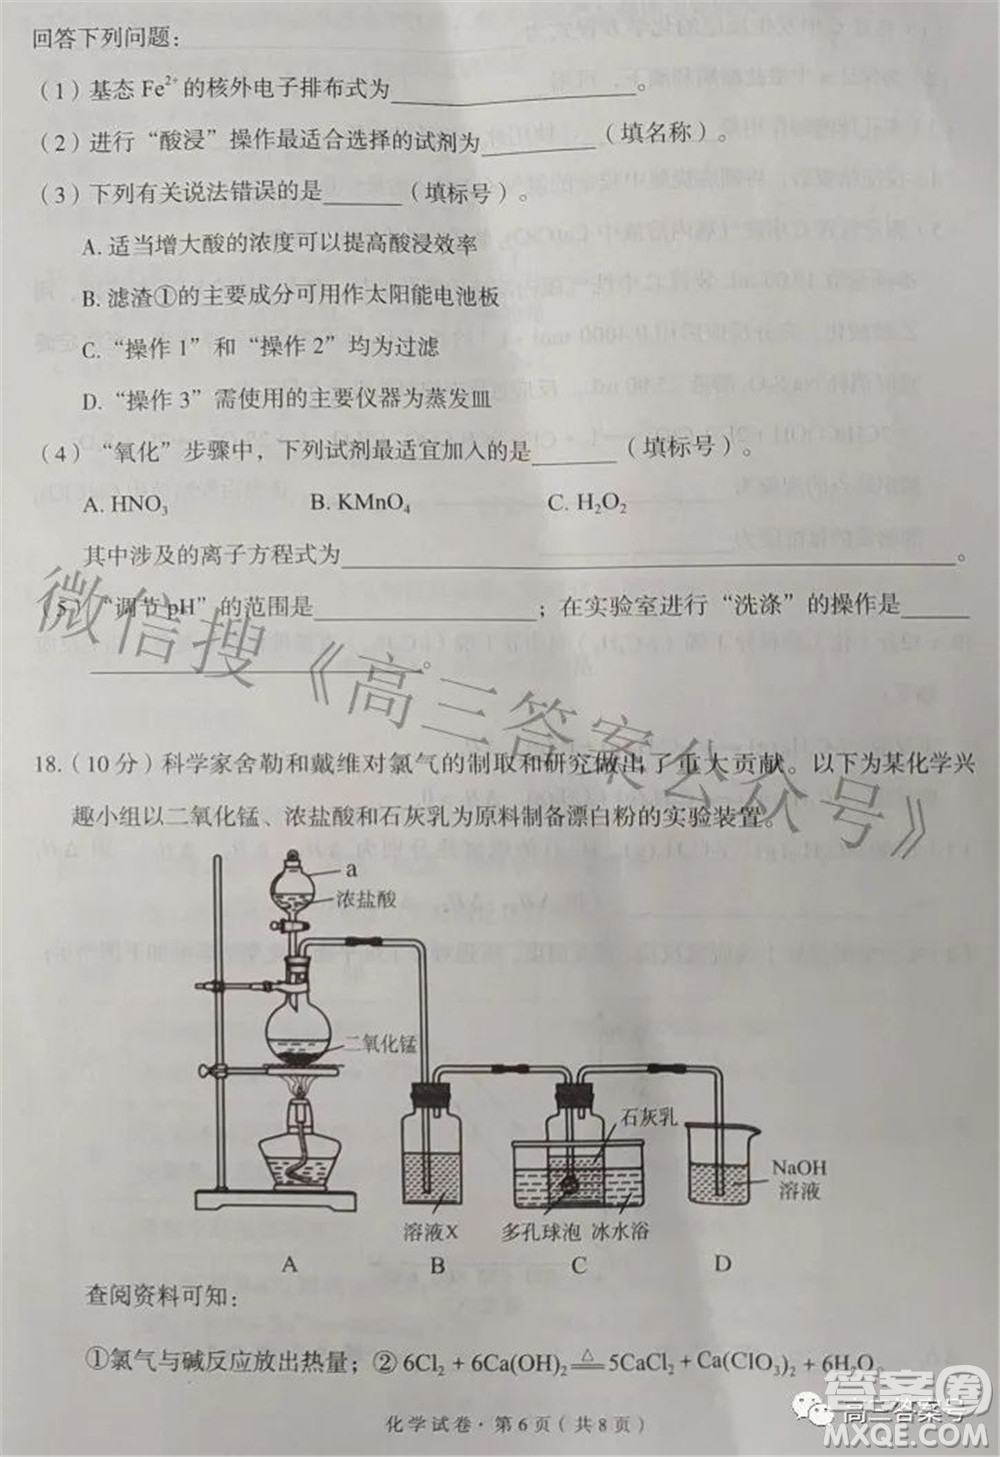 回答下列问题：
（1）基态 Fe²⁺ 的核外电子排布式为____________。
（2）进行“酸浸”操作最适合选择的试剂为________（填名称）。
（3）下列有关说法错误的是______（填标号）。
A. 适当增大酸的浓度可以提高酸浸效率
B. 滤渣①的主要成分可用作太阳能电池板
C.“操作 1”和“操作 2”均为过滤
D.“操作 3”需使用的主要仪器为蒸发皿
（4）“氧化”步骤中，下列试剂最适宜加入的是______（填标号）。
A. HNO₃ B. KMnO₄ C. H₂O₂
其中涉及的离子方程式为____________。
（5）“调节 pH”的范围是____________；在实验室进行“洗涤”的操作是______
____________。
微信搜《高三答案公众号》
18.（10 分）科学家舍勒和戴维对氯气的制取和研究做出了重大贡献。以下为某化学兴
趣小组以二氧化锰、浓盐酸和石灰乳为原料制备漂白粉的实验装置。
a
浓盐酸
二氧化锰
石灰乳
NaOH
溶液
溶液X 多孔球泡 冰水浴
A B C D
查阅资料可知：
①氯气与碱反应放出热量；② 6Cl₂ + 6Ca(OH)₂ ≜ 5CaCl₂ + Ca(ClO₃)₂ + 6H₂O。
化学试卷 · 第 6 页（共 8 页）
高三答案号
答案圈
MXQE.COM